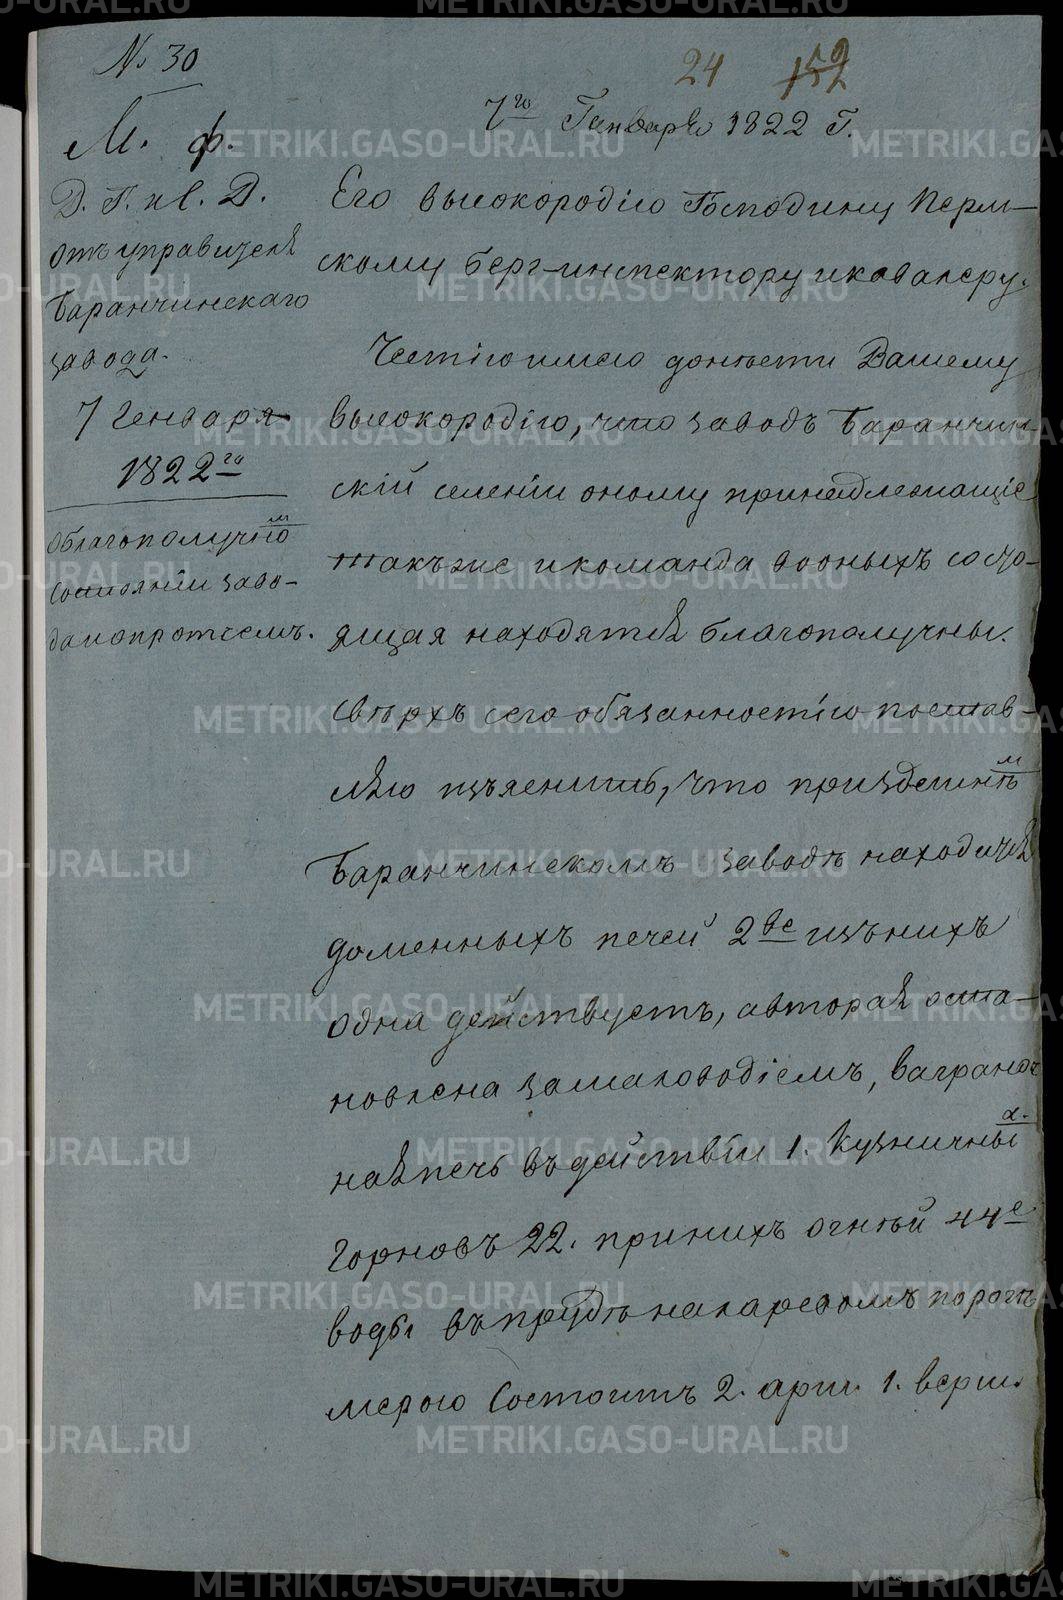 № 30
24 152
7го Генваря 1822 Г.
М. Ф.
Д. Г. и С. Д.
отъ управителя
Баранчинскаго
завода.
7 Генваря
1822го
облагополучном
Состоянии заво-
да и опротчемъ.
Его высокородiю Господину Перм-
скому берг-инспектору и кавалеру.
Честiю имею донъести Вашему
высокородiю, что заводъ Баранчин-
скiй селенiи оному принадлежащiе
такъже и команда вооныхъ состо-
ящая находятся благополучны.
Свѣрхъ сего обязанностiю постав-
ляю изъяснить, что приздешнѣм
Баранчинскомъ заводѣ находится
доменныхъ печей 2ве изъ нихъ
одна действуетъ, а вторая оста-
новлена замаловодiемъ, вагранъ
ная печь въ действiи 1. Кузничных
Горновъ 22. при нихъ огнѣй 44е
воды въ прудѣ на ларевомъ порогѣ
мерою Состоитъ 2. арш. 1. верш.